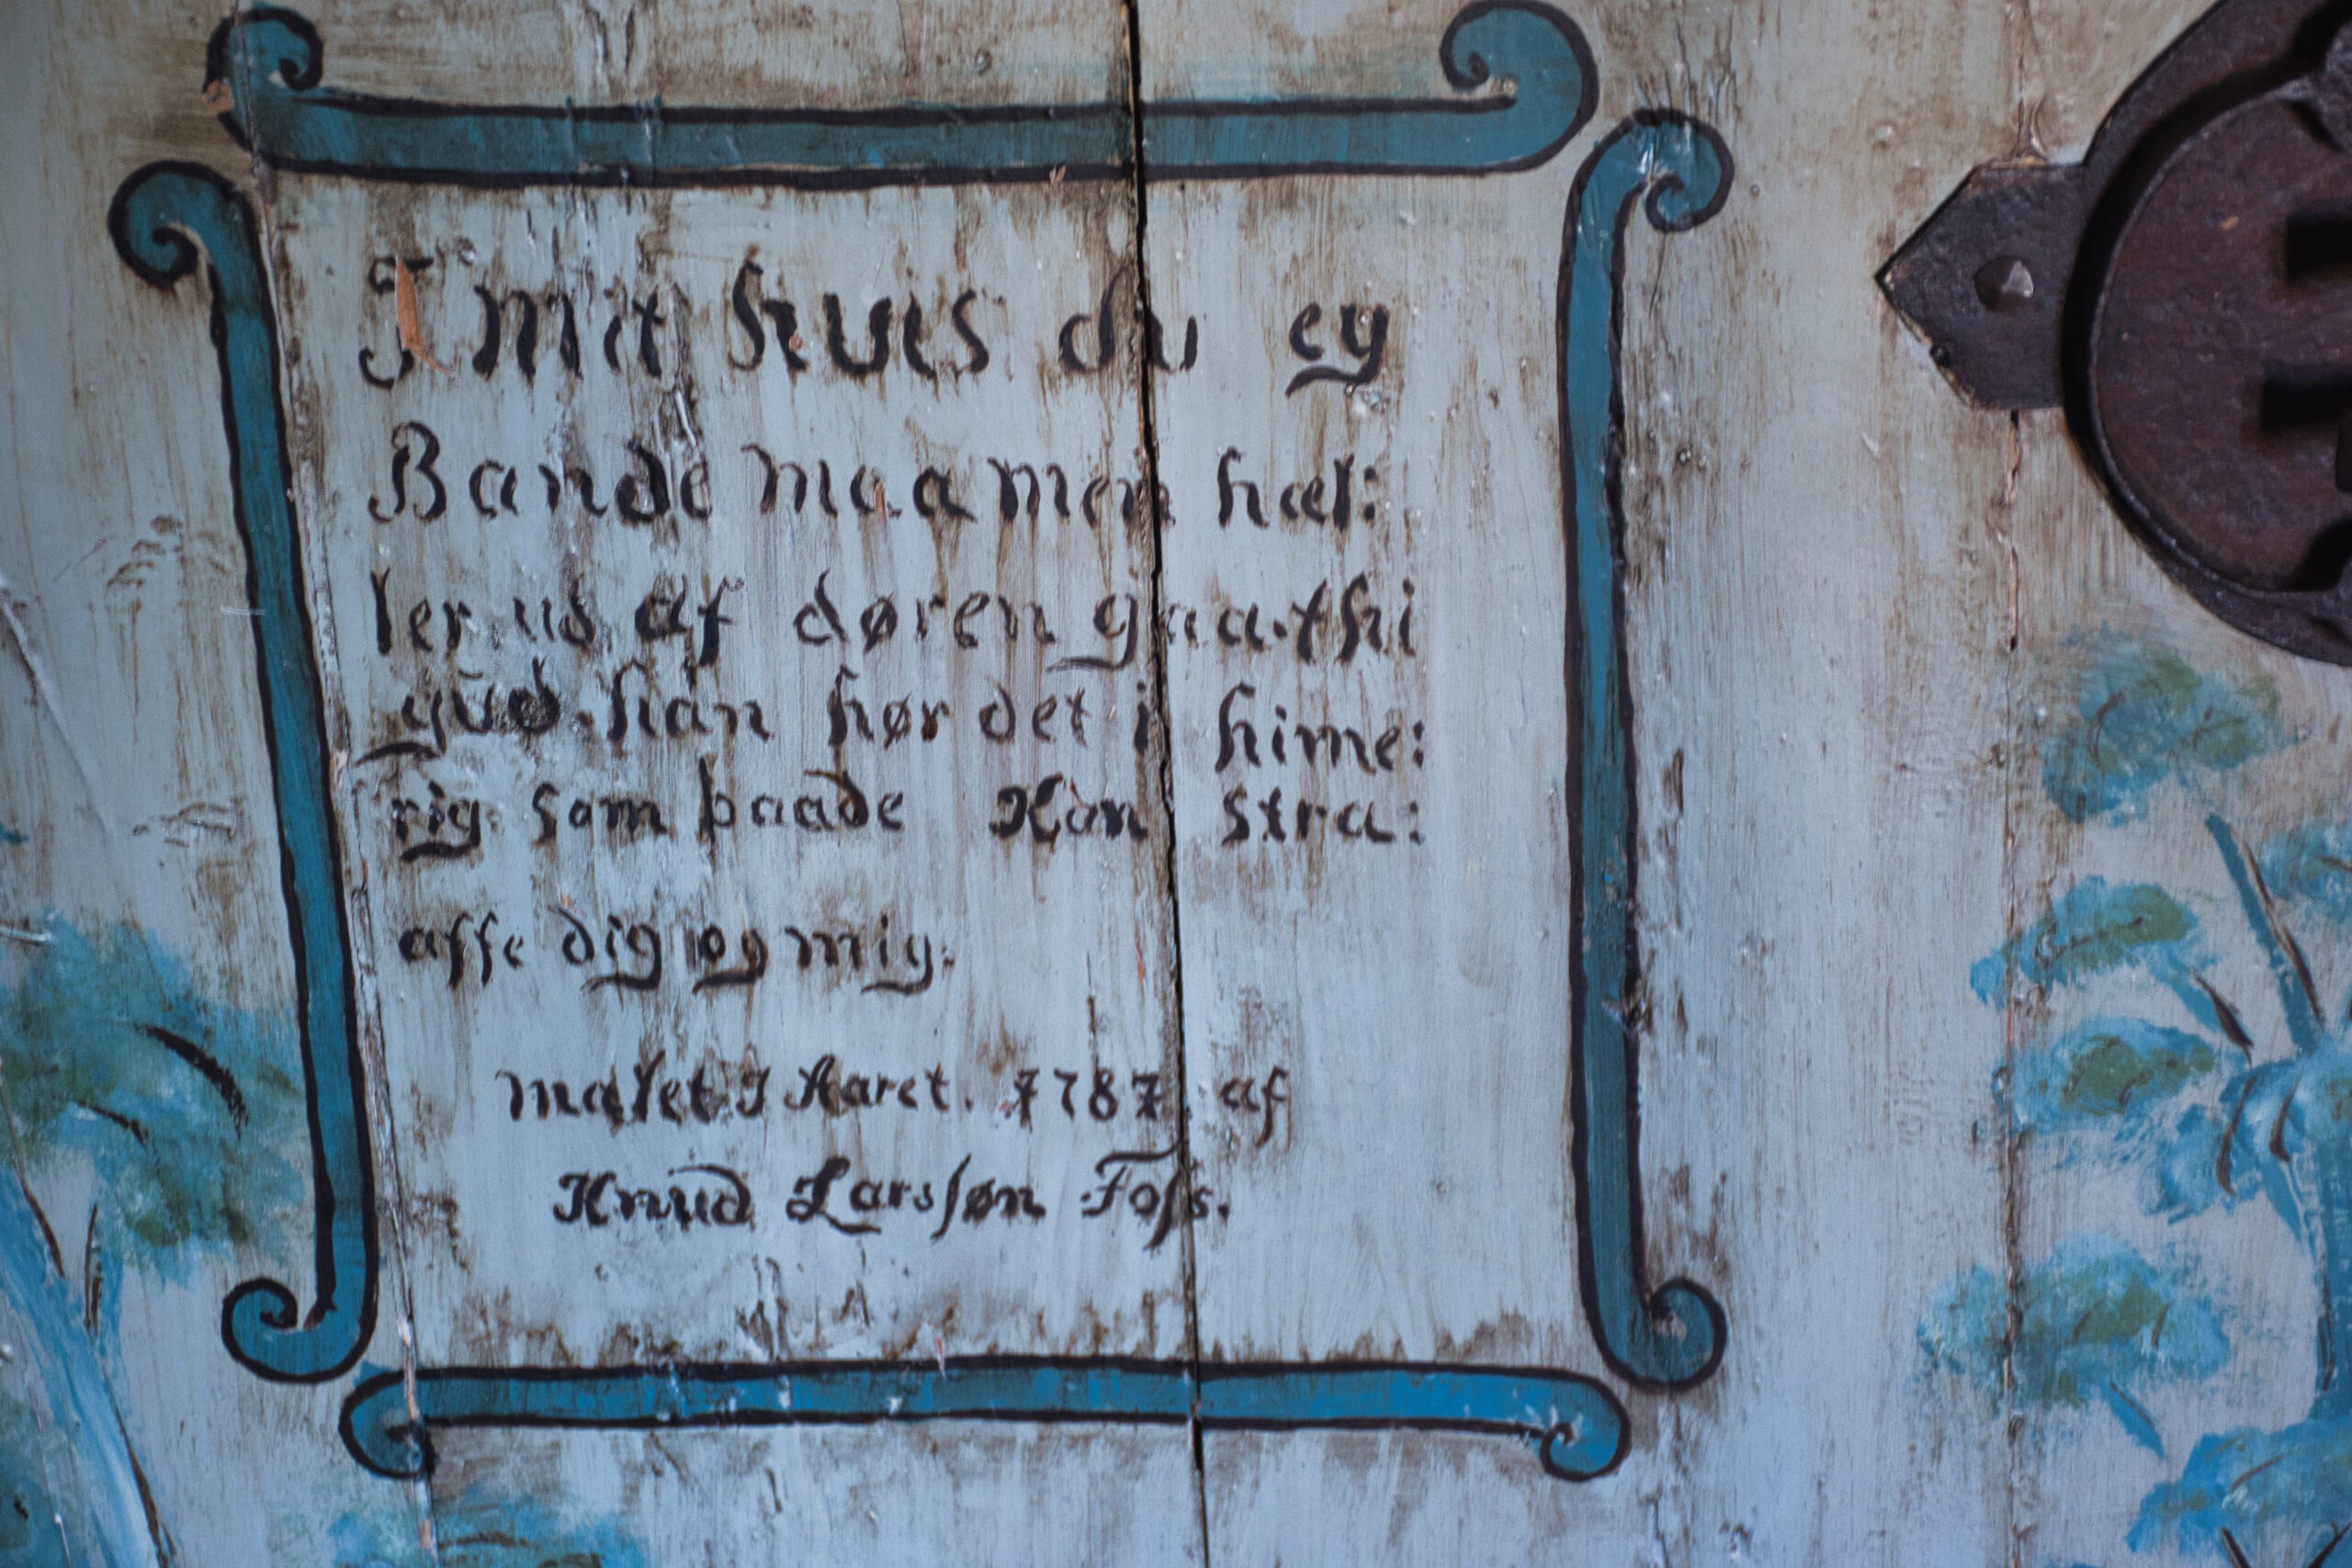 I mit huus du ey
Bande maa men hæl:
ler ud af døren gaa. thi
gud. han hør det i hime:
rig: som baade Kan stra:
affe dig og mig.
malet I Aaret. 1787. af
Knud Larssøn Foss.